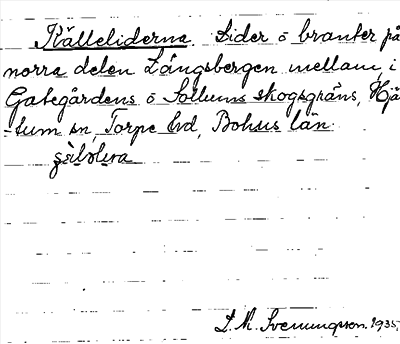 Källeliderna. Lider o branter på
norra delen Långsbergen mellan, i
Gategårdens o Sollums skogsgräns, Hjä
-tum sn, Torpe hd, Bohus län.
L. M. Svenungsson. 1935.